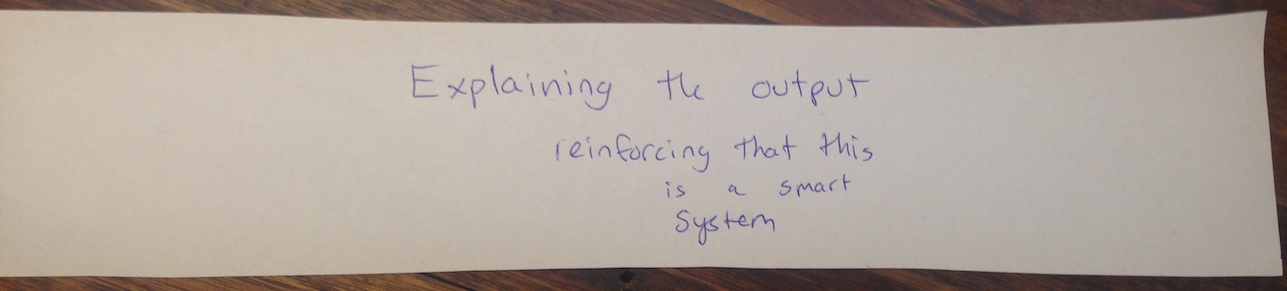 Explaining the output
reinforcing that this
is a smart
System